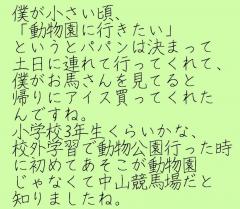 僕が小さい頃、
「動物園に行きたい」
というとパパンは決まって
土日に連れて行ってくれて、
僕がお馬さんを見てると
帰りにアイス買ってくれた
んですね。
小学校3年生くらいかな、
校外学習で動物公園行った時
に初めてあそこが動物園
じゃなくて中山競馬場だと
知りましたね。